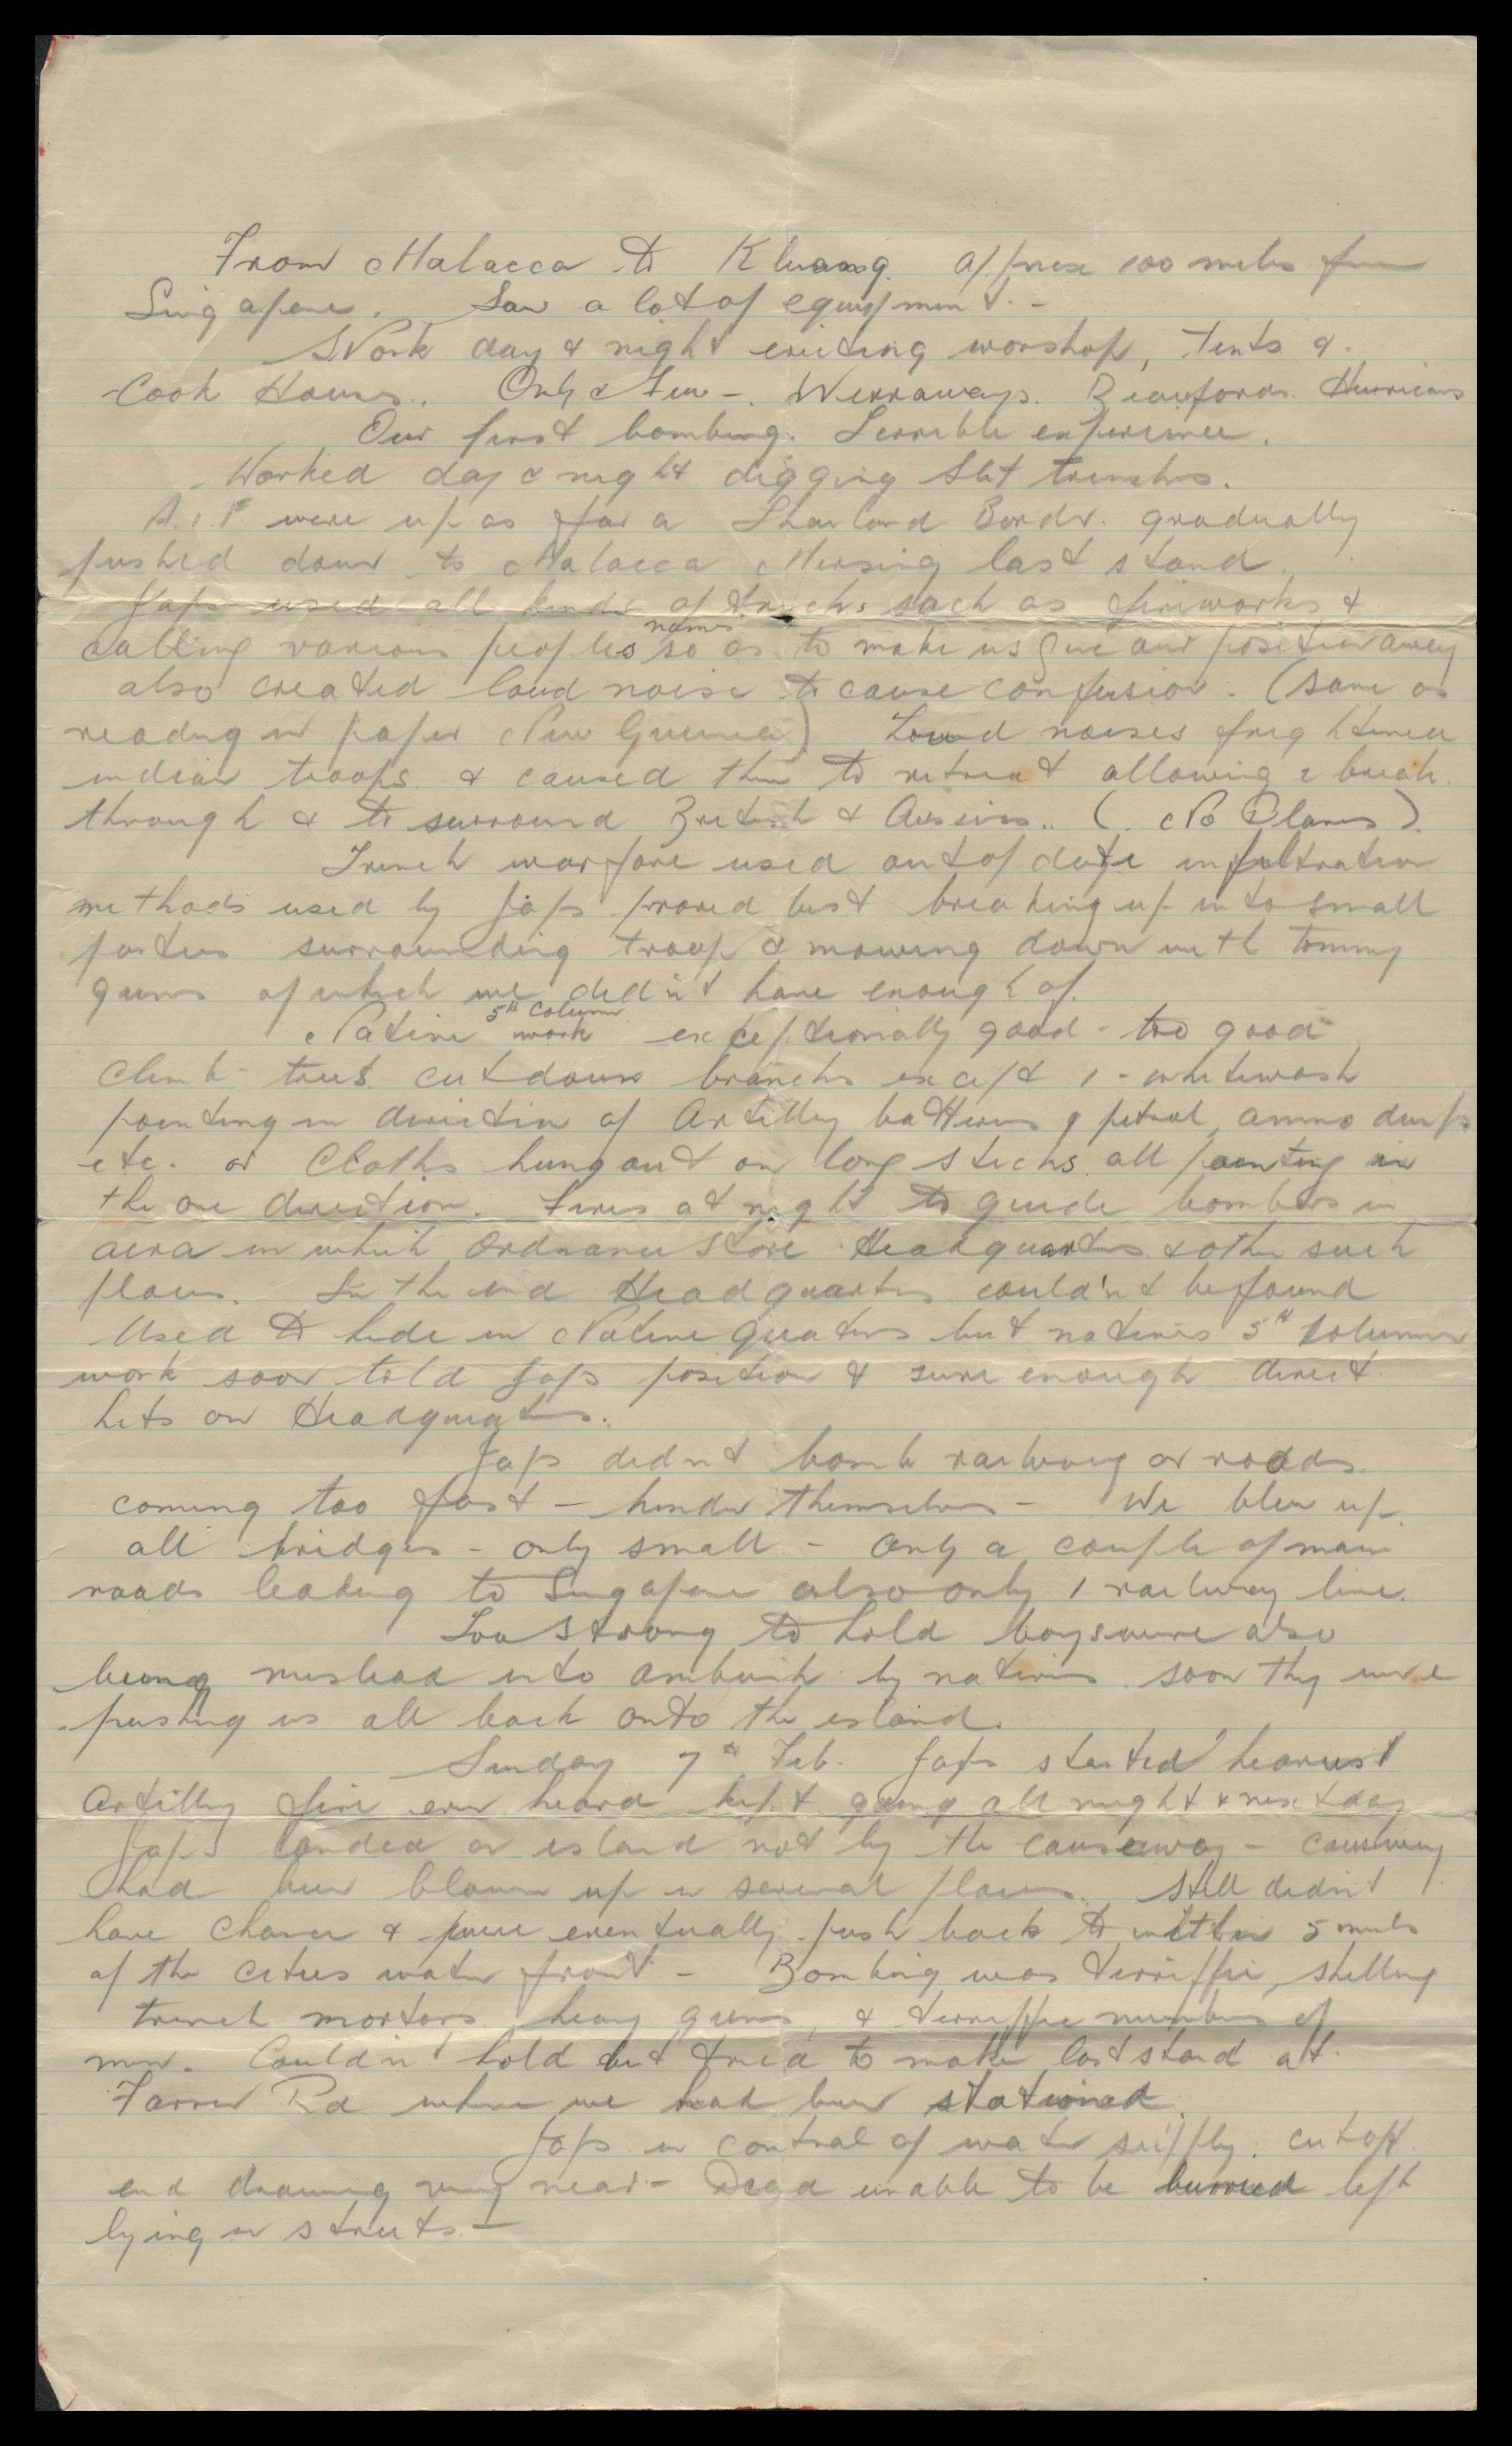 From Malacca to Kluang. Approx 100 miles from
Singapore. Saw a lot of equipment. -
Work day & night erecting worshop, Tents &
Cook Houses. Only a Few -. Wirraways. Beaufords. Hurricans
Our first bombing. Terrible experience.
Worked day & night digging Slit trenches.
A.I.F. were up as far a Thailand Border. gradually
pushed down to Malacca Mersing last stand.
Japs used all kinds of tricks such as fireworks &
calling various peoples names so as to make us give our position away
also created loud noise to cause confusion. (same as
reading in paper New Guinea) Loud noises frightened
indian troops & caused them to retreat allowing a break
through & to surround British & Aussies.. (No Planes).
Trench warfare used out of date infiltration
methods used by Japs proved best breaking up into small
parties surrounding troops & mowing down with tommy
guns of which we didn't have enough of.
Native 5th column work exceptionally good - too good
Climb trees cut down branches except 1 - whitewash
pointing in direction of Artillery batteries & petrol, ammo dumps
etc. or Cloths hung out on long sticks all pointing in
the one direction. Fires at night to guide bombers in
aera in which Ordnance Store Headquarters & other such
places. In the end Headquarters couldn't be found
Used to hide in Native Quaters but natives 5th Column
work soon told Japs position & sure enough direct
hits on Headquaters.
Japs didn't bomb railway or roads
coming too fast - hinder themselves - We blew up
all bridges - only small - Only a couple of main
roads leading to Singapore also only 1 railway line.
Too Strong to hold boys were also
being mislead into ambush by natives soon they were
pushing us all back onto the island.
Sunday 7th Feb. Japs started heaviest
Artillery fire ever heard kept going all night & next day
Japs landed on island not by the causeway - causeway
had been blown up in several places. Still didn't
have chance & were eventually push back to within 5 miles
of the cities water front - Bombing was terriffic, shelling
trench mortars heavy guns, & terriffic numbers of
men. Couldn't hold but tried to make last stand at
Farrer Rd where we had been stationed.
Japs in control of water supply. cut off
end drawing very near - Dead unable to be burried left
lying in streets. -